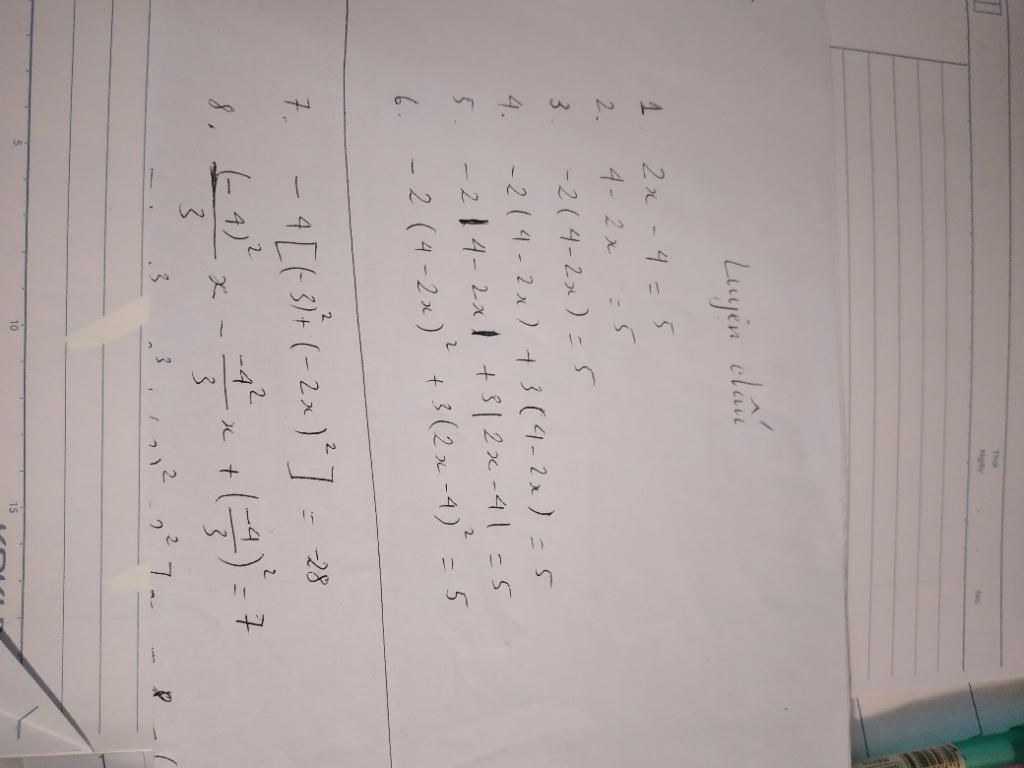 Luyện dấu
1 2x - 4 = 5
2. 4 - 2x = 5
3. -2(4-2x) = 5
4. -2(4-2x) + 3(4-2x) = 5
5. -2|4-2x| + 3|2x-4| = 5
6. -2(4-2x)² + 3(2x-4)² = 5
7. -4[(-3)² + (-2x)²] = -28
8. (-4)²/3 x - -4²/3 x + (-4/3)² = 7
5
10
15